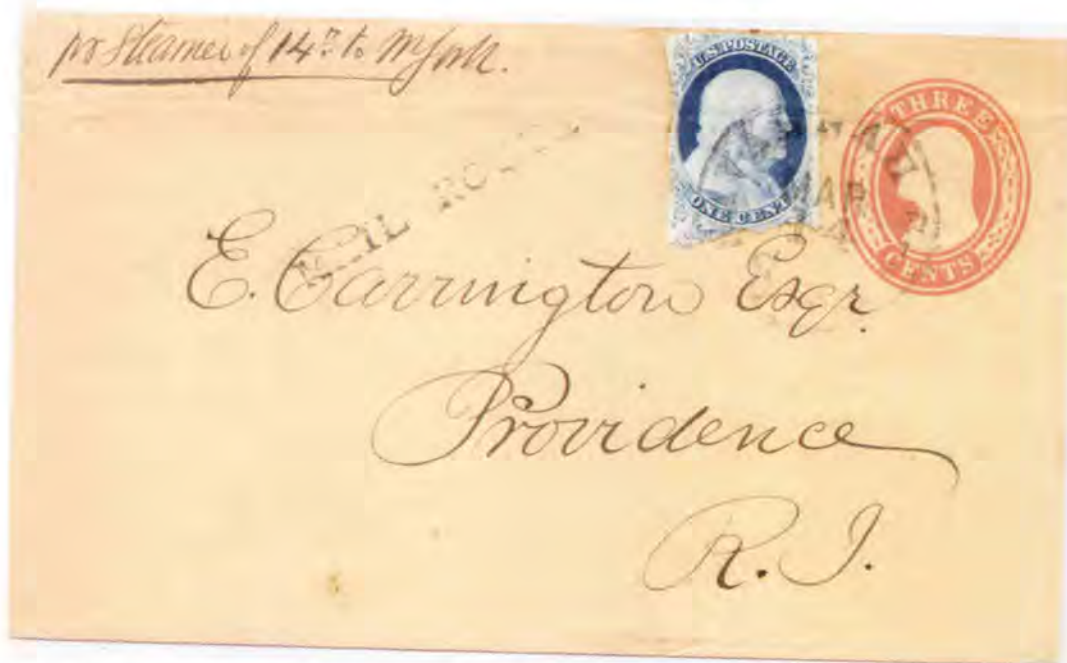 pr Steamer of 14th to N York.
U.S. POSTAGE
ONE CENT
THREE
CENTS
MAR
14
E. Carrington Esqr.
Providence
R. I.